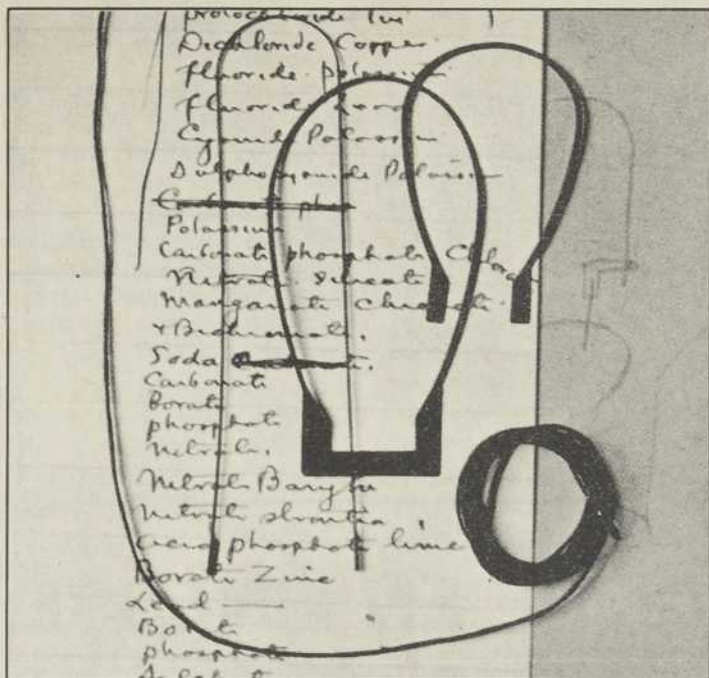 protochloride Tin
Dichloride Copper
fluoride potassium
fluoride
Cyanide Potassium
Sulphocyanide Potassium
Carbonate phos
Potassium
Carbonate phosphate Chlorate
Nitrate silicate
Manganate chromate.
+ Bichromate.
Soda
Carbonate
borate
phosphate
Nitrate.
Nitrate Baryta
nitrate strontia
acid phosphate lime
Borate Zinc
Lead —
Borate
phosphate